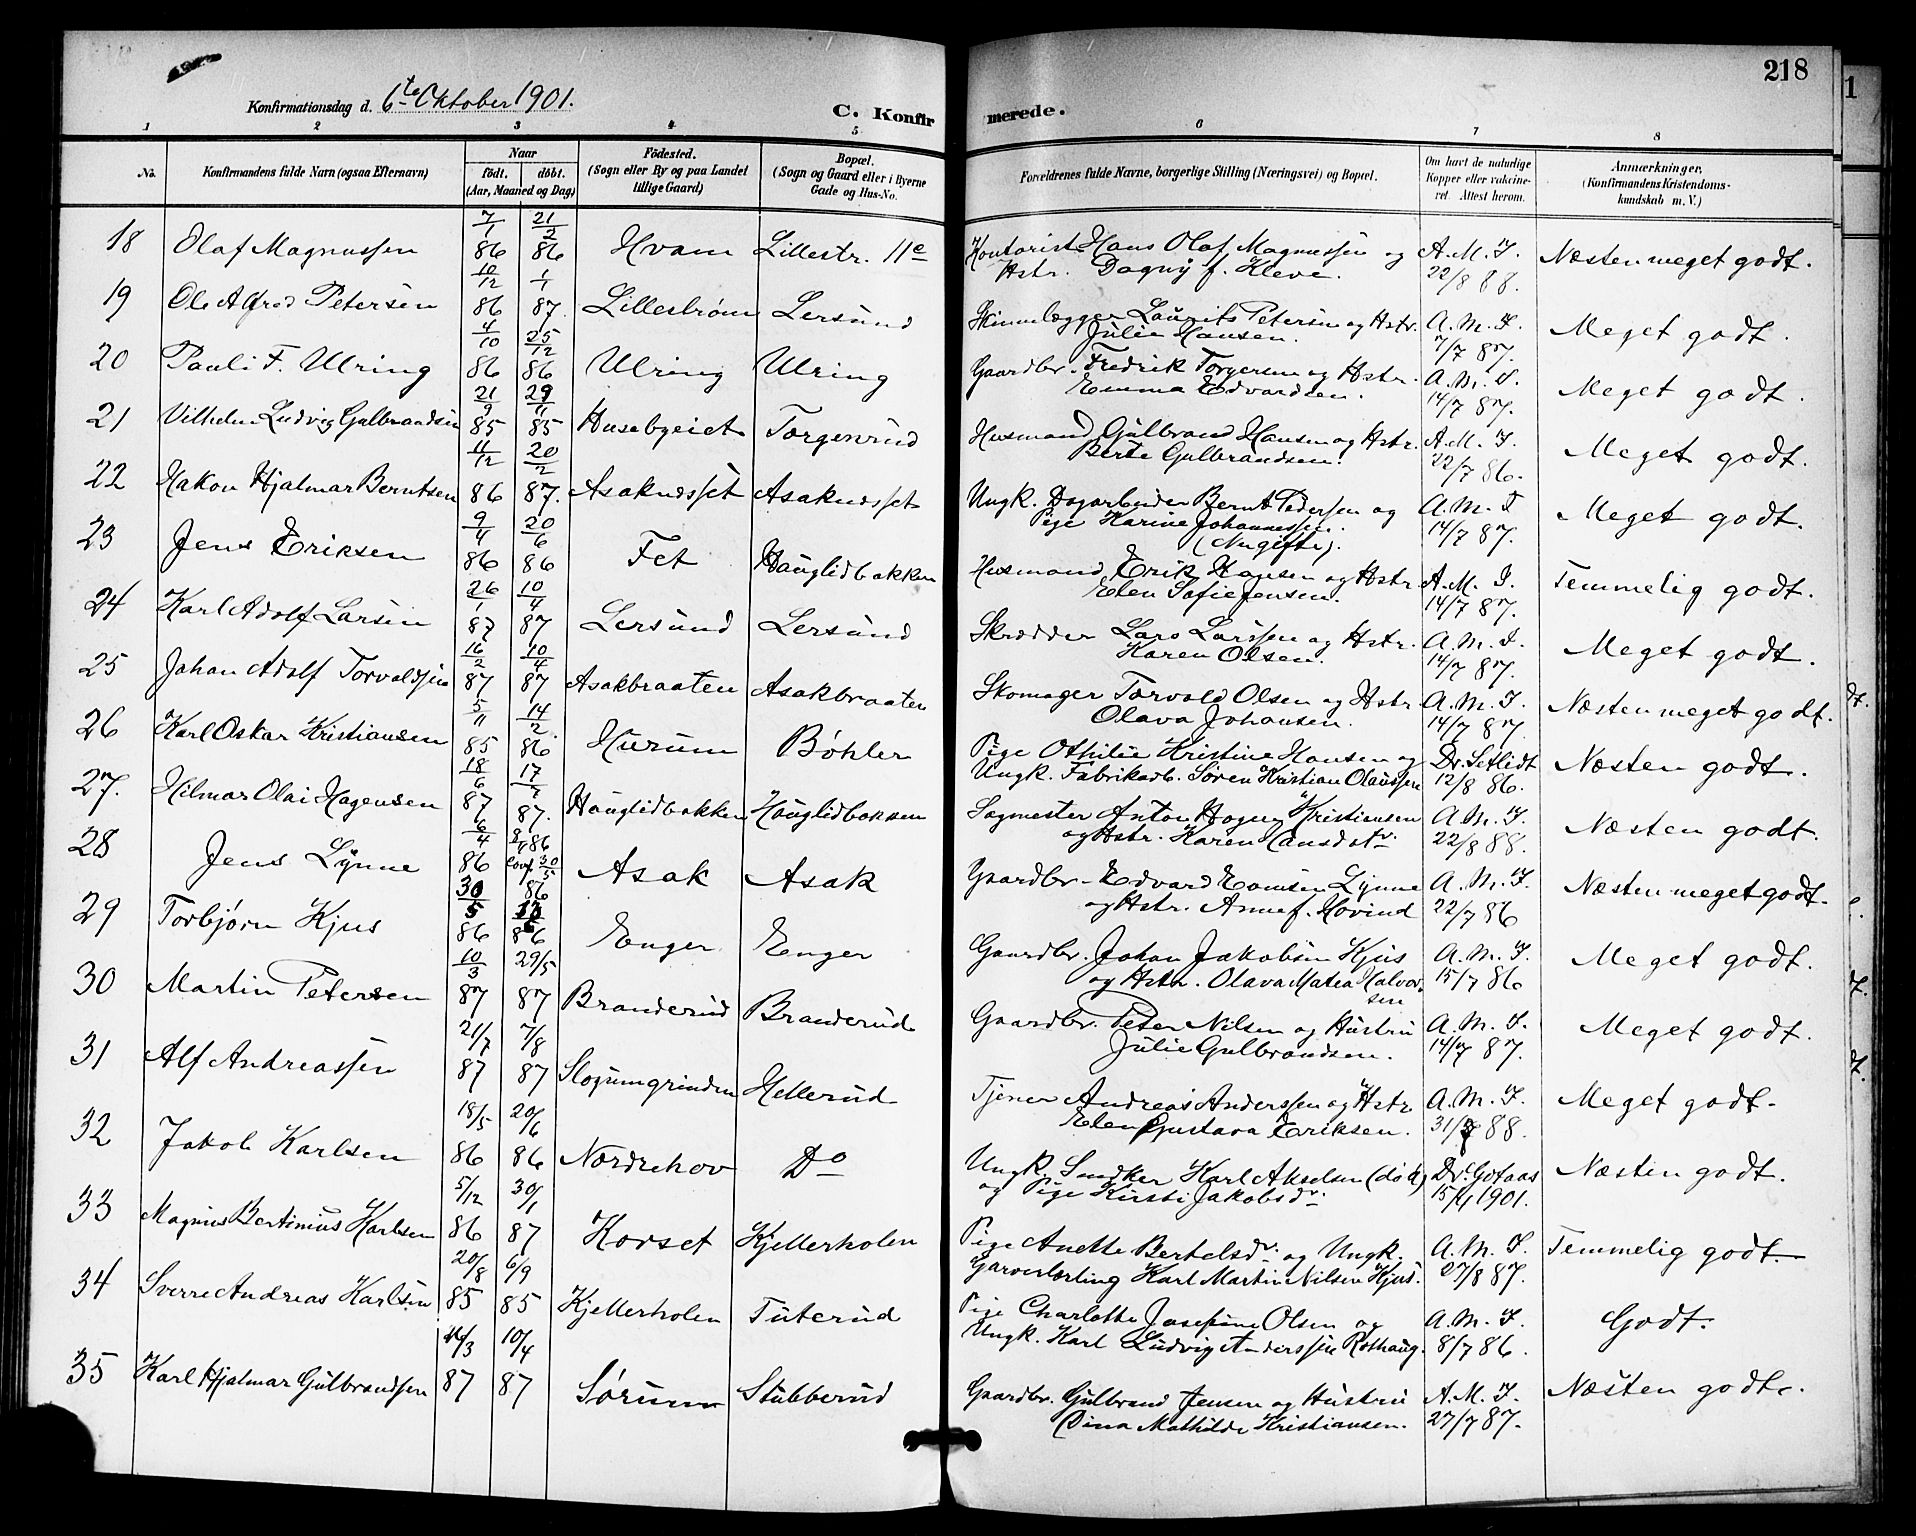 218
Konfirmationsdag d. 6te Oktober 1901.
C. Konfirmerede.
1 2 3 4 5 6 7 8
No. Konfirmandens fulde Navn (ogsaa Efternavn) Naar födt. döbt. (Aar, Maaned og Dag) Födested. (Sogn eller By og paa Landet tillige Gaard) Bopæl. (Sogn og Gaard eller i Byerne Gade og Hus-No. Forældrenes fulde Navne, borgerlige Stilling (Næringsvei) og Bopæl. Om havt de naturlige Kopper eller vaccineret. Attest herom. Anmærkninger, (Konfirmandens Kristendomskundskab m. V.)
18 Olaf Magnussen 7/1 86 21/2 86 Hvam Lillestr. 11e Kontorist Hans Olaf Magnussen og A. M. I. Næsten meget godt.
Hstr. Dagny f. Kleve. 22/8 88.
19 Ole Alfred Petersen 10/12 86 1/1 87. Lillestrøm Lersund Skinnelægger Laurits Petersen og Hstr. A. M. I. Meget godt.
Julie Hansen. 7/7 87.
20 Pauli F. Ulring 4/10 86 25/12 86 Ulring Ulring Gaardbr. Fredrik Torgersen og Hstr. A. M. I. Meget godt.
Emma Edvardsen. 14/7 87.
21 Vilhelm Ludvig Gulbrandsen 21/9 85 29/11 85 Husebyeiet Torgenrud Husmand Gulbrand Hansen og Hstr. A. M. I. Meget godt.
Berte Gulbrandsen. 22/7 86.
22 Hakon Hjalmar Berntsen 11/12 86 20/2 87. Asaknesset Asaknesset Ungk. Dagarbeider Bernt Pedersen og A. M. I Meget godt.
Pige Karine Johannessen. 14/7 87.
(Nugifte).
23 Jens Eriksen 9/4 86 20/6 86 Fet Hauglidbakken Husmand Erik Hansen og Hstr. A. M. I. Temmelig godt.
Elen Sofie Jensen. 14/7 87.
24 Karl Adolf Larsen 26/1 87 10/4 87 Lersund Lersund Skrædder Lars Larssen og Hstr. A. M. I. Meget godt.
Karen Olsen. 14/7 87.
25 Johan Adolf Torvaldsen 16/2 87 10/4 87 Asakbraaten Asakbraaten Skomager Torvald Olsen og Hstr A. M. I. Næsten meget godt.
Olava Johansen. 14/7 87.
26 Karl Oskar Kristiansen 5/11 85 14/2 86 Hurum Bøhler Pige Othilie Kristine Hansen og Næsten godt.
Ungk. Fabrikarb. Søren Kristian Olaussen 12/8 86.
27. Hilmar Olai Hagensen 18/6 87 17/7 87. Hauglidbakken Hauglidbakken Sagmester Anton Hagen Kristiansen A. M. I. Næsten godt.
og Hstr. Karen 22/8 88.
28 Jens Lynne 6/4 86 86 conf. 30/5 86 Asak Asak Gaardbr. Edvard Lynne A. M. I. Næsten meget godt.
og Hstr. Anne f. Hovind 22/7 86
29 Torbjørn Kjus 30/5 86 86 Enger Enger Gaardbr. Johan Jakobsen Kjus A. M. I. Meget godt.
og Hstr. Olava Matea Halvorsen 15/7 86
30 Martin Petersen 10/3 87 29/5 87 Branderud Branderud Gaardbr. Peter Nilsen og Hustru A. M. I. Meget godt.
Julie Gulbrandsen. 14/7 87.
31 Alf Andreassen 21/7 87 7/8 87 Slogumgrinden Hellerud Tjener Andreas Anderssen og Hstr. A. M. I. Meget godt.
Elen Gustava Eriksen. 88.
32 Jakob Karlsen 18/5 86 20/6 86 Nordrehov Do Ungk. Snedker Karl Akselsen (død) Dr. Gotaas Næsten godt.
og Pige Kirsti Jakobsd. 1901.
33 Magnus Bertinius Karlsen 5/12 86 30/1 87 Korset Kjellerholen Pige Anette Bertelsd. og Ungk. A. M. I. Temmelig godt.
Garverlærling Karl Martin Nilsen Kjus. 27/8 87.
34 Sverre Andreas Karlsen 20/8 85 6/9 85 Kjellerholen Tuterud Pige Charlotte Josefine Olsen og A. M. I. Godt.
Ungk. Karl Ludvig Anderssen Rothaug. 8/7 86.
35 Karl Hjalmar Gulbrandsen 87 10/4 87 Sørum Stubberud Gaardbr. Gulbrand Jensen og Hustru A. M. I. Næsten godt.
Dina Mathilde Kristiansen. 27/7 87.